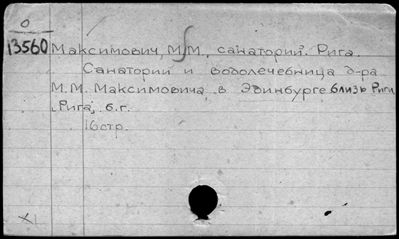 0
13560
Максимович, М.М., санаторий. Рига.
Санатории и водолечебница д-ра
М.М. Максимовича, в Эдинбурге близь Риги
Рига, б.г.
16 стр.
XI